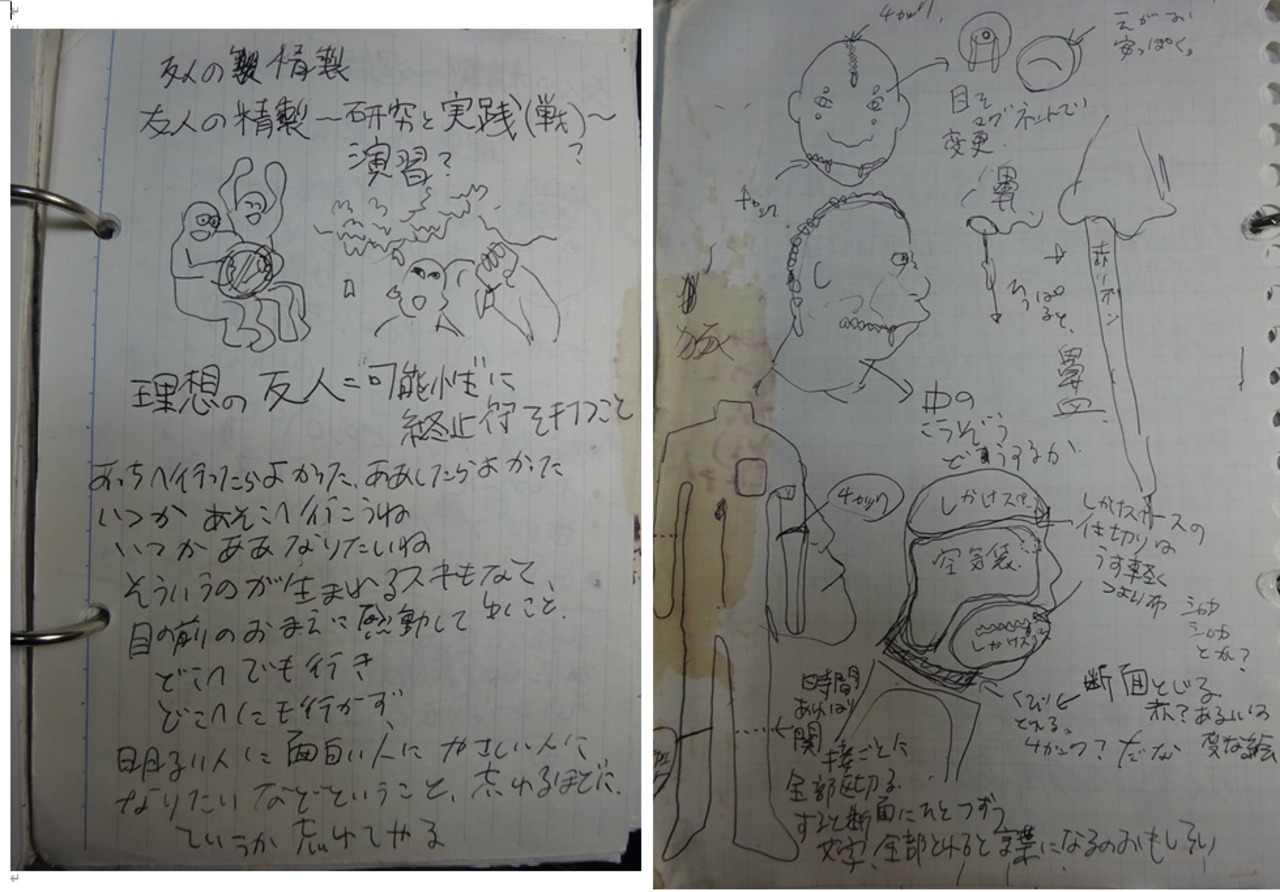 友人の製 精製
友人の精製 〜研究と実践(戦)〜
?
演習?
理想の友人="可能性"に
終止符を打つこと
あっちへ行ったらよかった、ああしたらよかった
いつか あそこへ行こうね
いつか ああなりたいね
そういうのが生まれるスキもなく、
目の前のおまえに感動して 歩くこと.
どこへでも行き
どこへにも行かず、
明るい人に 面白い人に やさしい人に
なりたい などということ、忘れるほどに.
ていうか 忘れてやる
チャック.
えがお
安っぽく。
目を
マグネットで
変更.
チャック
鼻
ひっぱ
ると、
鼻血
赤リボン
豚
中の
こうぞう
どうするか.
チャック
しかけスペ
空気袋.
しかけスペ
しかけスペースの
仕切りは
うす軽く
つよい布
シャカ
シャカ
とか?
くび
とれる。
チャック? だな
断面とじる
赤?あるいは
変な絵
時間
あれば
関接ごとに
全部区切る.
すると断面にひとつずつ
文字、全部とれると言葉になるのおもしろい